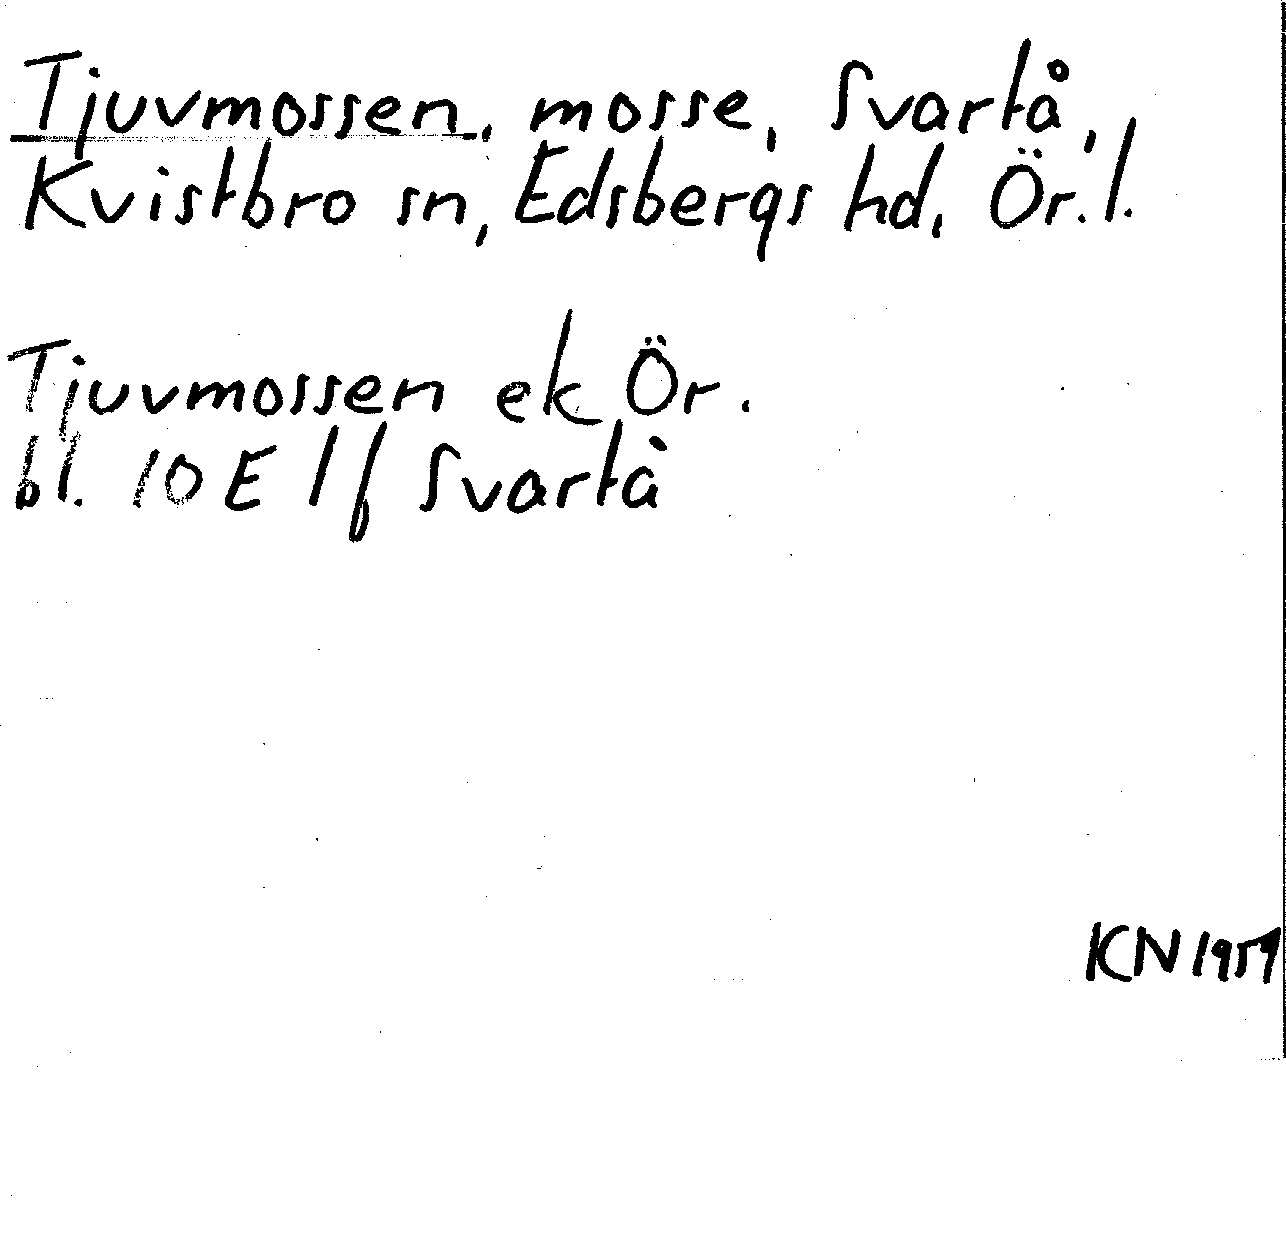 Tjuvmossen, mosse, Svartå,
Kvistbro sn, Edsbergs hd, Ör.l.
Tjuvmossen ek Ör.
bl. 10 E 1 f Svartå
KN 1959